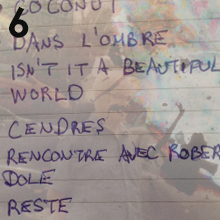 6
COCONUT
DANS L'OMBRE
ISN'T IT A BEAUTIFUL
WORLD
CENDRES
RENCONTRE AVEC ROBER
DOLE
RESTE